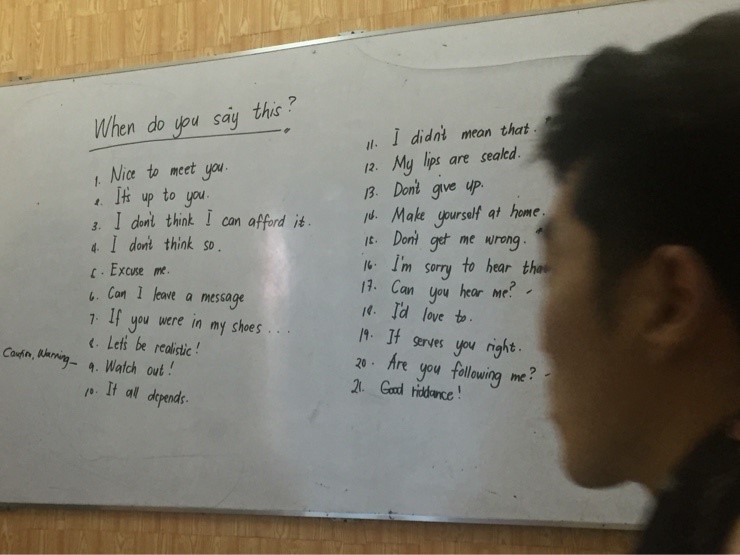 When do you say this?
1. Nice to meet you.
2. It's up to you.
3. I don't think I can afford it.
4. I don't think so.
5. Excuse me.
6. Can I leave a message
7. If you were in my shoes ...
8. Let's be realistic!
Caution, Warning –
9. Watch out!
10. It all depends.
11. I didn't mean that.
12. My lips are sealed.
13. Don't give up.
14. Make yourself at home.
15. Don't get me wrong.
16. I'm sorry to hear
17. Can you hear me? -
18. I'd love to.
19. It serves you right.
20. Are you following me? -
21. Good riddance!